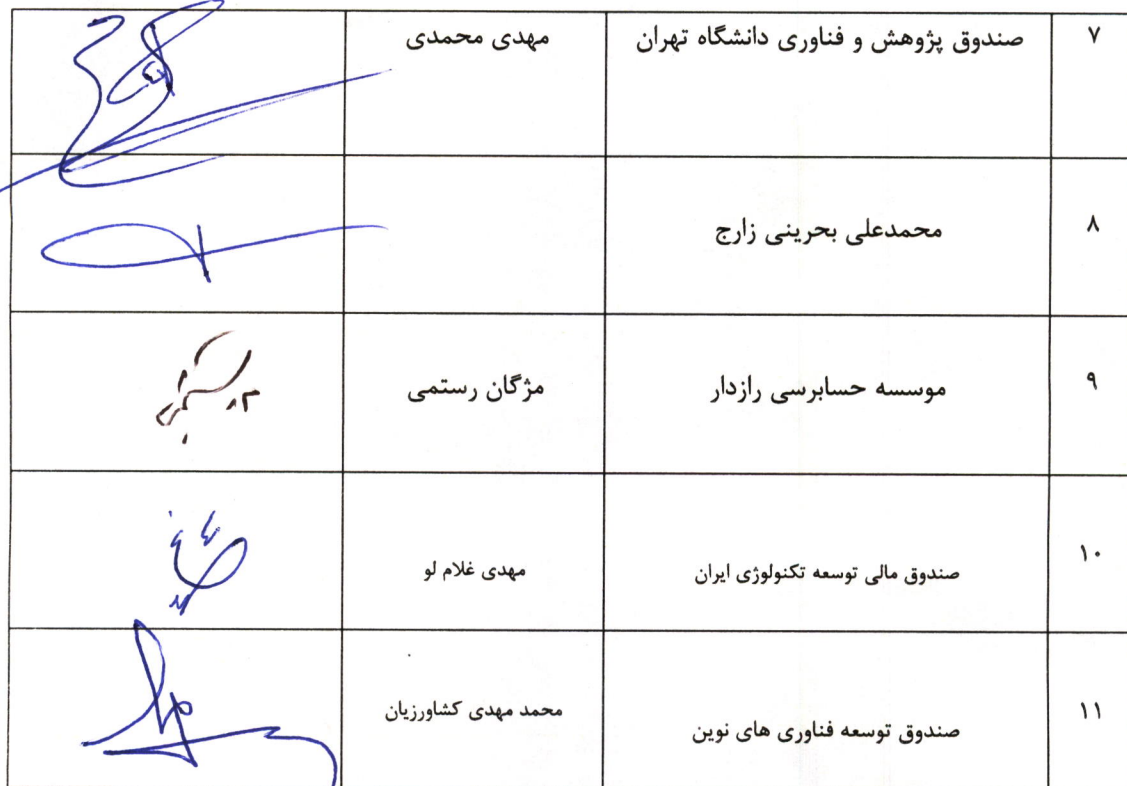 ۷ صندوق پژوهش و فناوری دانشگاه تهران مهدی محمدی
۸ محمدعلی بحرینی زارج
۹ موسسه حسابرسی رازدار مژگان رستمی
۱۰ صندوق مالی توسعه تکنولوژی ایران مهدی غلام لو
۱۱ صندوق توسعه فناوری های نوین محمد مهدی کشاورزیان